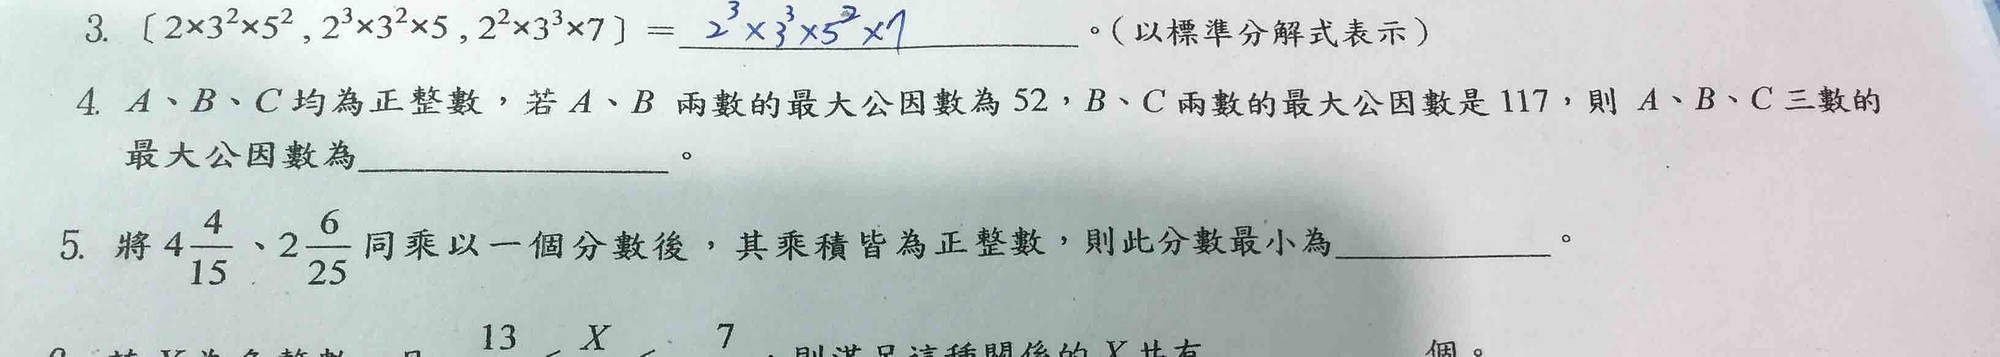 3. 〔2×3²×5² , 2³×3²×5 , 2²×3³×7〕= 2³×3³×5²×7 。(以標準分解式表示)
4. A、B、C 均為正整數，若 A、B 兩數的最大公因數為 52，B、C 兩數的最大公因數是 117，則 A、B、C 三數的
最大公因數為 。
5. 將 4 4/15 、2 6/25 同乘以一個分數後，其乘積皆為正整數，則此分數最小為 。
13 X 7 ，則滿足這種關係的 X 共有 個。